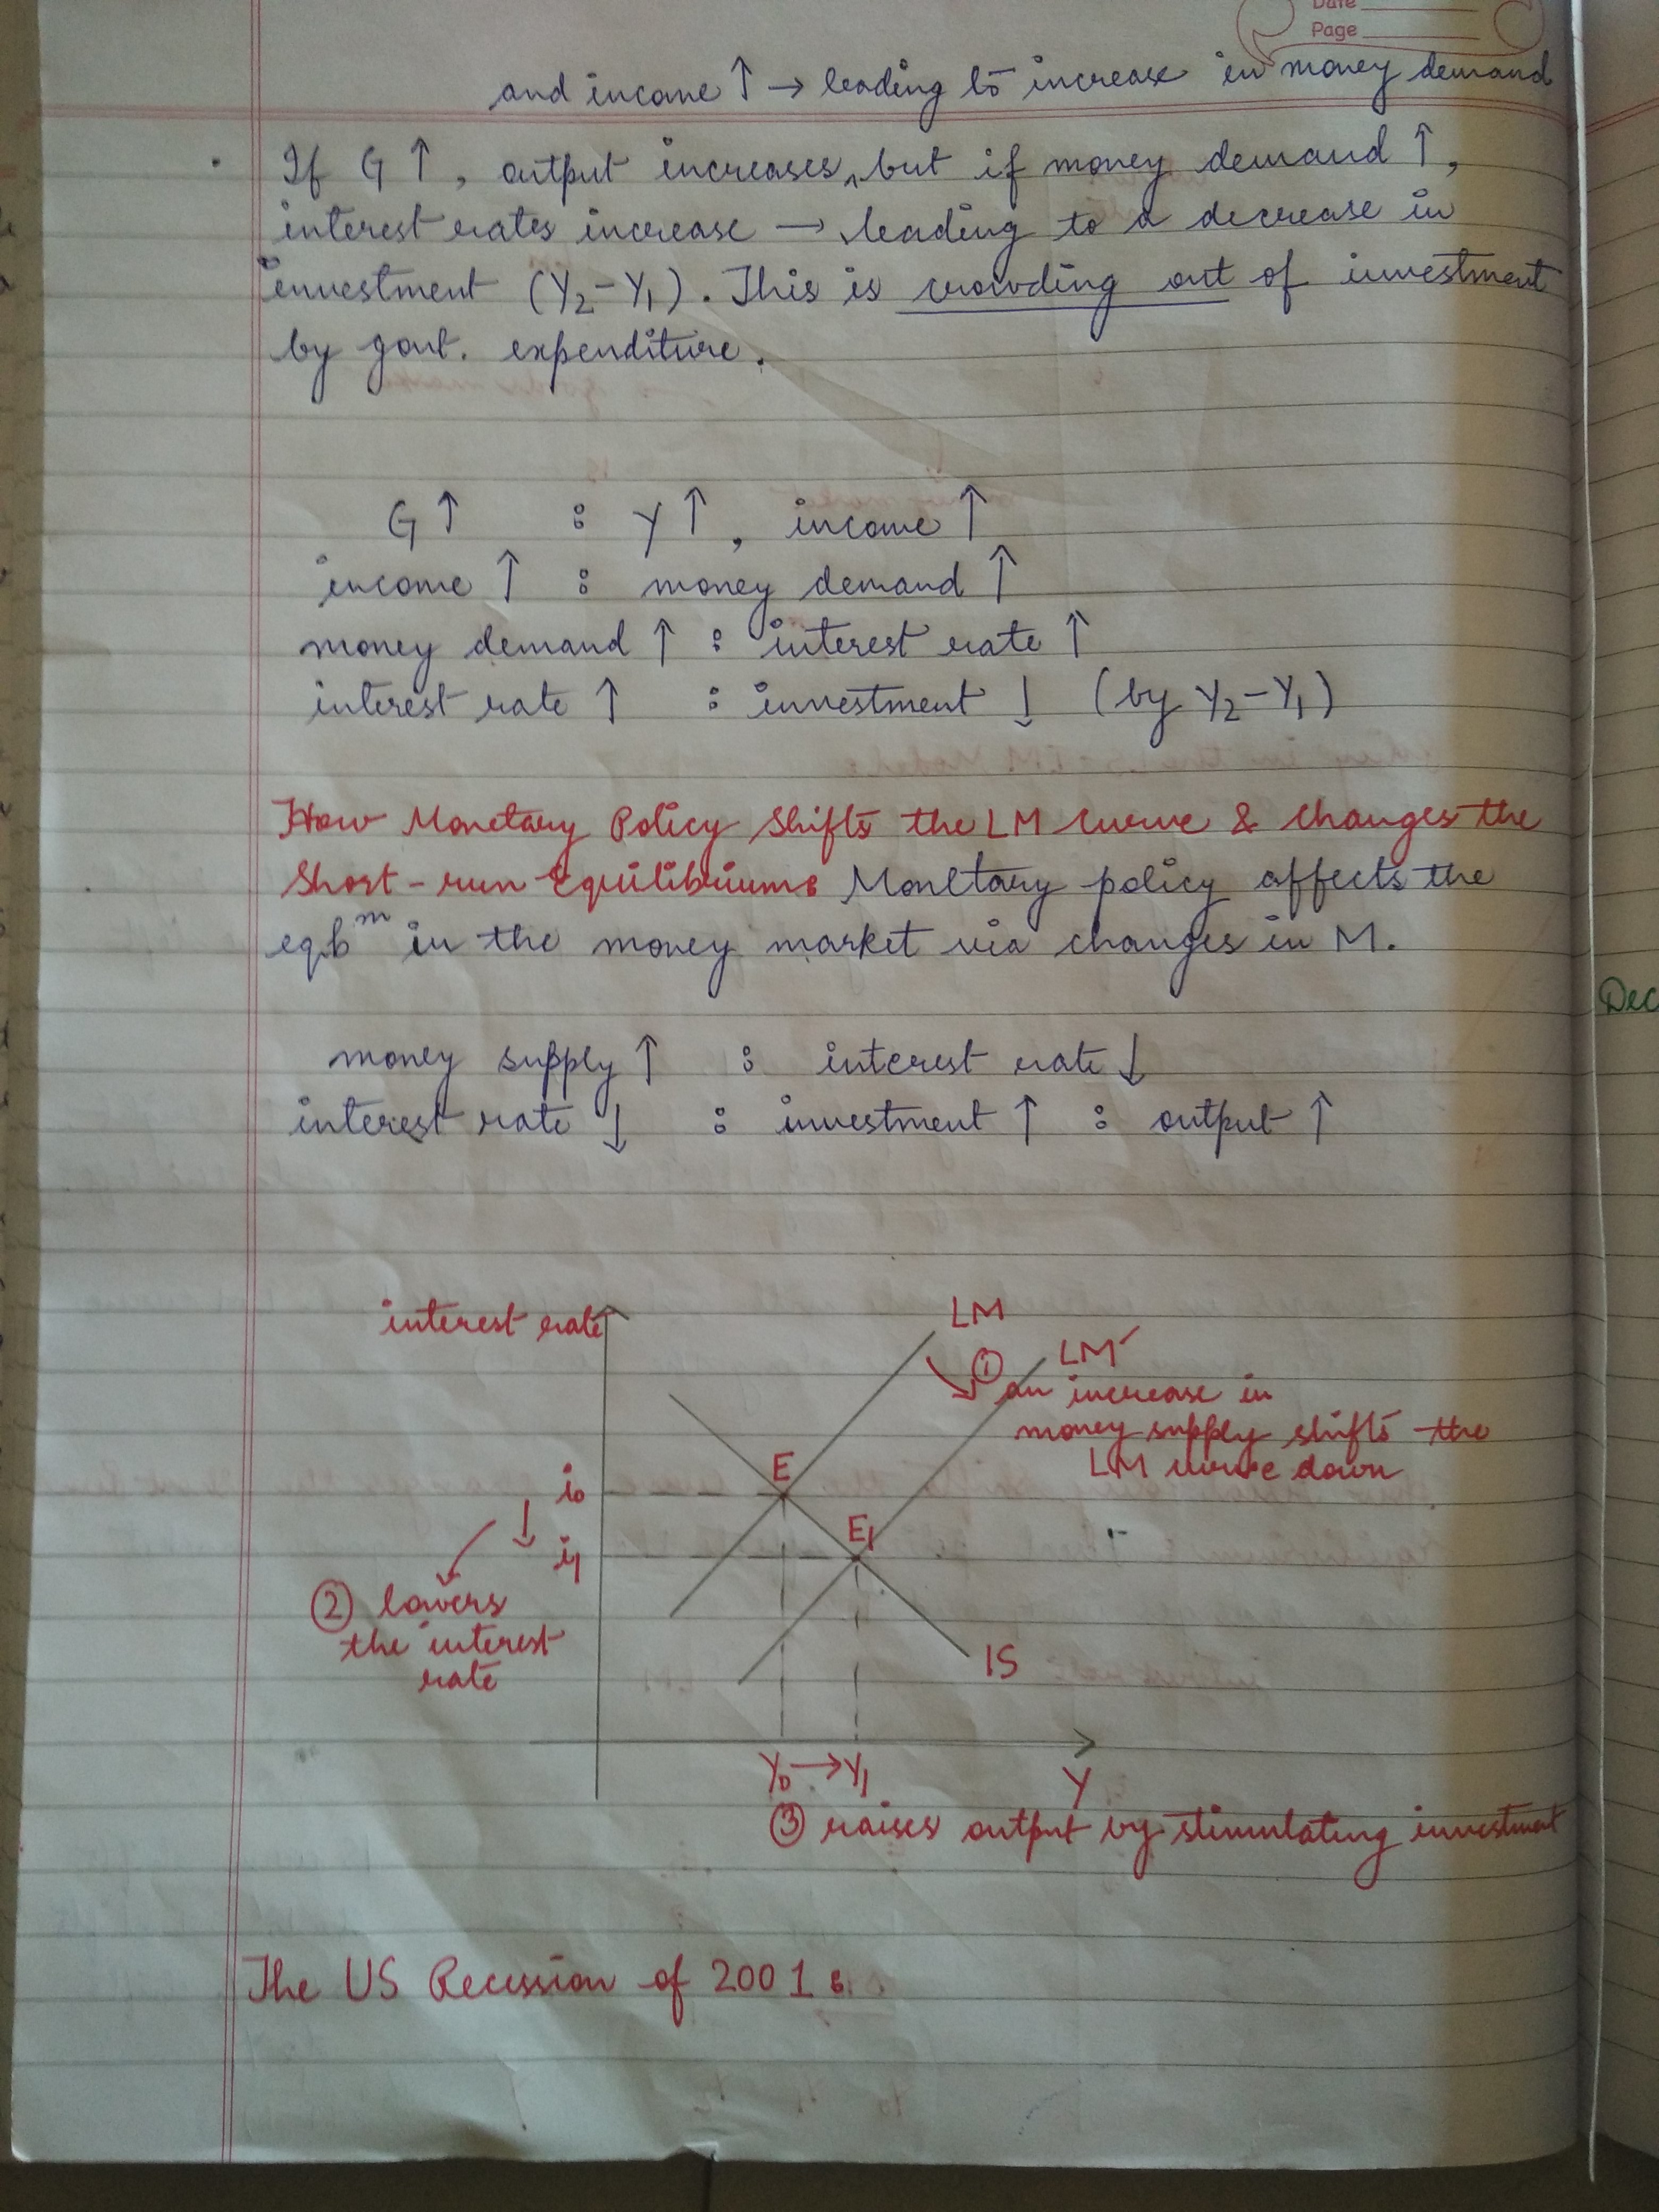 Date
Page
and income ↑ → leading to increase in money demand
· If G ↑, output increases ‸ but if money demand ↑,
interest rates increase → leading to a decrease in
investment (Y₂-Y₁). This is crowding out of investment
by govt. expenditure.
G ↑ : Y ↑, income ↑
income ↑ : money demand ↑
money demand ↑ : interest rate ↑
interest rate ↑ : investment ↓ (by Y₂-Y₁)
How Monetary Policy Shifts the LM curve & changes the
Short-run Equilibrium: Monetary policy affects the
eqbᵐ in the money market via changes in M.
Dec
money supply ↑ : interest rate ↓
interest rate ↓ : investment ↑ : output ↑
interest rate
LM
LM′
① an increase in
money supply shifts the
LM curve down
E
i₀
E₁
↓
i₁
② lowers
the interest
rate
IS
Y₀ → Y₁
Y
③ raises output by stimulating investment
The US Recession of 2001: